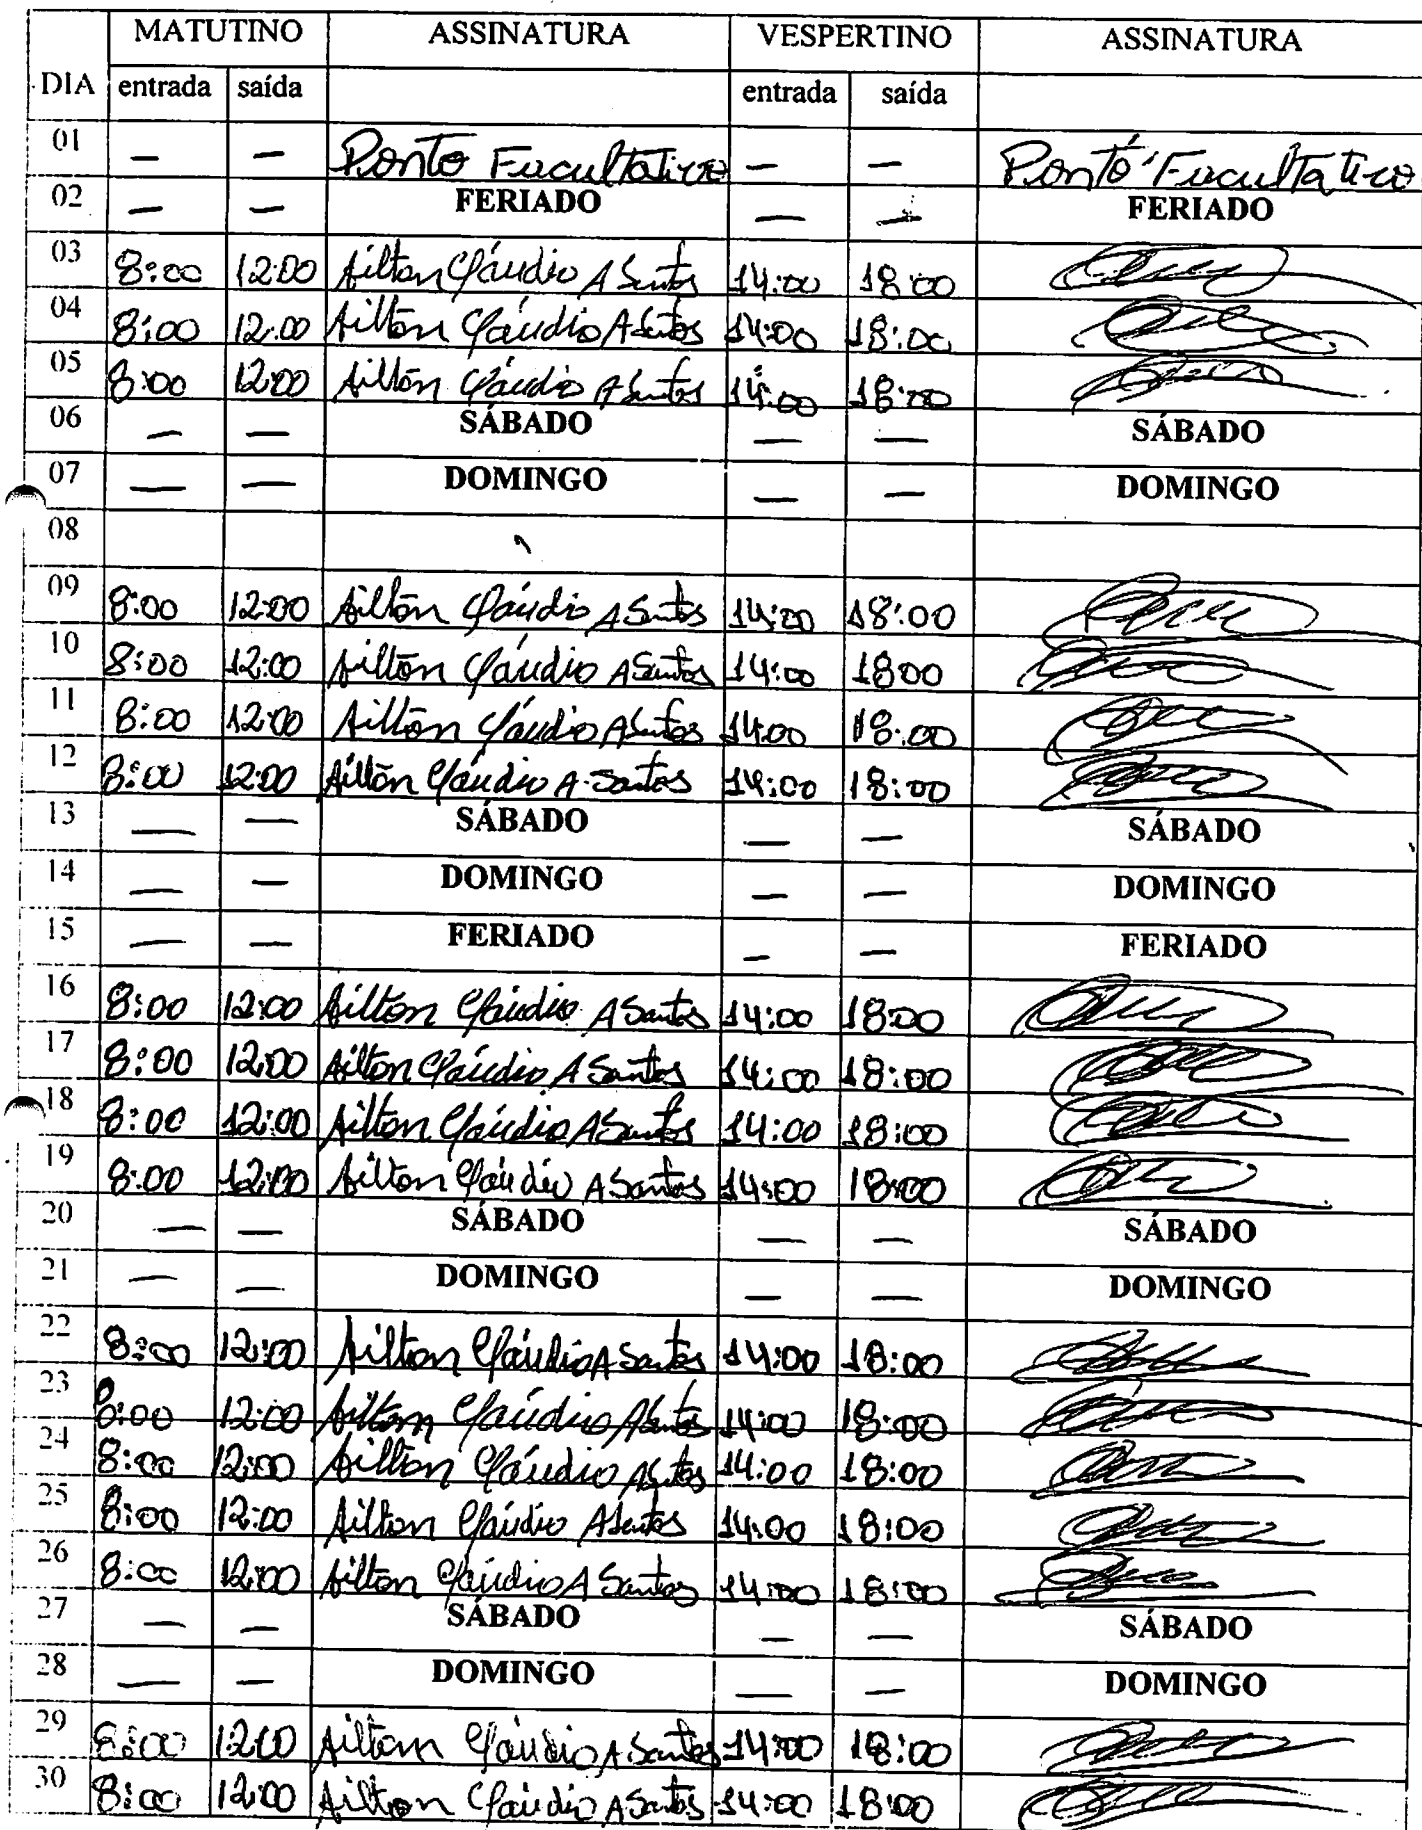 MATUTINO ASSINATURA VESPERTINO ASSINATURA
DIA entrada saída entrada saída
01 — — Ponto Facultativo — — Ponto Facultativo
02 — — FERIADO — — FERIADO
03 8:00 12:00 Ailton Cláudio A Santos 14:00 18:00
04 8:00 12:00 Ailton Cláudio A Santos 14:00 18:00
05 8:00 12:00 Ailton Cláudio A Santos 14:00 18:00
06 — — SÁBADO — — SÁBADO
07 — — DOMINGO — — DOMINGO
08
09 8:00 12:00 Ailton Cláudio A Santos 14:00 18:00
10 8:00 12:00 Ailton Cláudio A Santos 14:00 18:00
11 8:00 12:00 Ailton Cláudio A Santos 14:00 18:00
12 8:00 12:00 Ailton Cláudio A. Santos 14:00 18:00
13 — — SÁBADO — — SÁBADO
14 — — DOMINGO — — DOMINGO
15 — — FERIADO — — FERIADO
16 8:00 12:00 Ailton Cláudio A Santos 14:00 18:00
17 8:00 12:00 Ailton Cláudio A Santos 14:00 18:00
18 8:00 12:00 Ailton Cláudio A Santos 14:00 18:00
19 8:00 12:00 Ailton Cláudio A Santos 14:00 18:00
20 — — SÁBADO — — SÁBADO
21 — — DOMINGO — — DOMINGO
22 8:00 12:00 Ailton Cláudio A Santos 14:00 18:00
23 8:00 12:00 Ailton Cláudio A Santos 14:00 18:00
24 8:00 12:00 Ailton Cláudio A Santos 14:00 18:00
25 8:00 12:00 Ailton Cláudio A Santos 14:00 18:00
26 8:00 12:00 Ailton Cláudio A Santos 14:00 18:00
27 — — SÁBADO — — SÁBADO
28 — — DOMINGO — — DOMINGO
29 8:00 12:00 Ailton Cláudio A. Santos 14:00 18:00
30 8:00 12:00 Ailton Cláudio A Santos 14:00 18:00